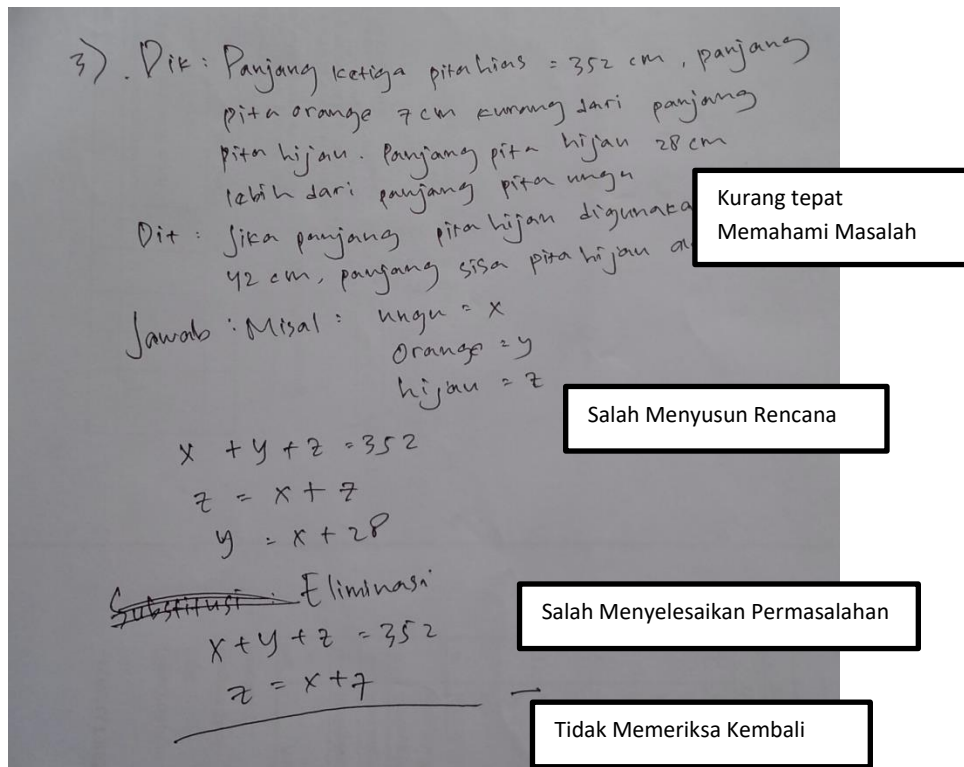 3). Dik : Panjang ketiga pita hias = 352 cm, panjang
pita orange 7 cm kurang dari panjang
pita hijau. Panjang pita hijau 28 cm
lebih dari panjang pita ungu
Kurang tepat
Memahami Masalah
Dit : Jika panjang pita hijau digunaka
42 cm, panjang sisa pita hijau
Jawab : Misal : ungu = x
orange = y
hijau = z
Salah Menyusun Rencana
x + y + z = 352
z = x + 7
y = x + 28
Substitusi : Eliminasi
Salah Menyelesaikan Permasalahan
x + y + z = 352
z = x + 7 –
Tidak Memeriksa Kembali